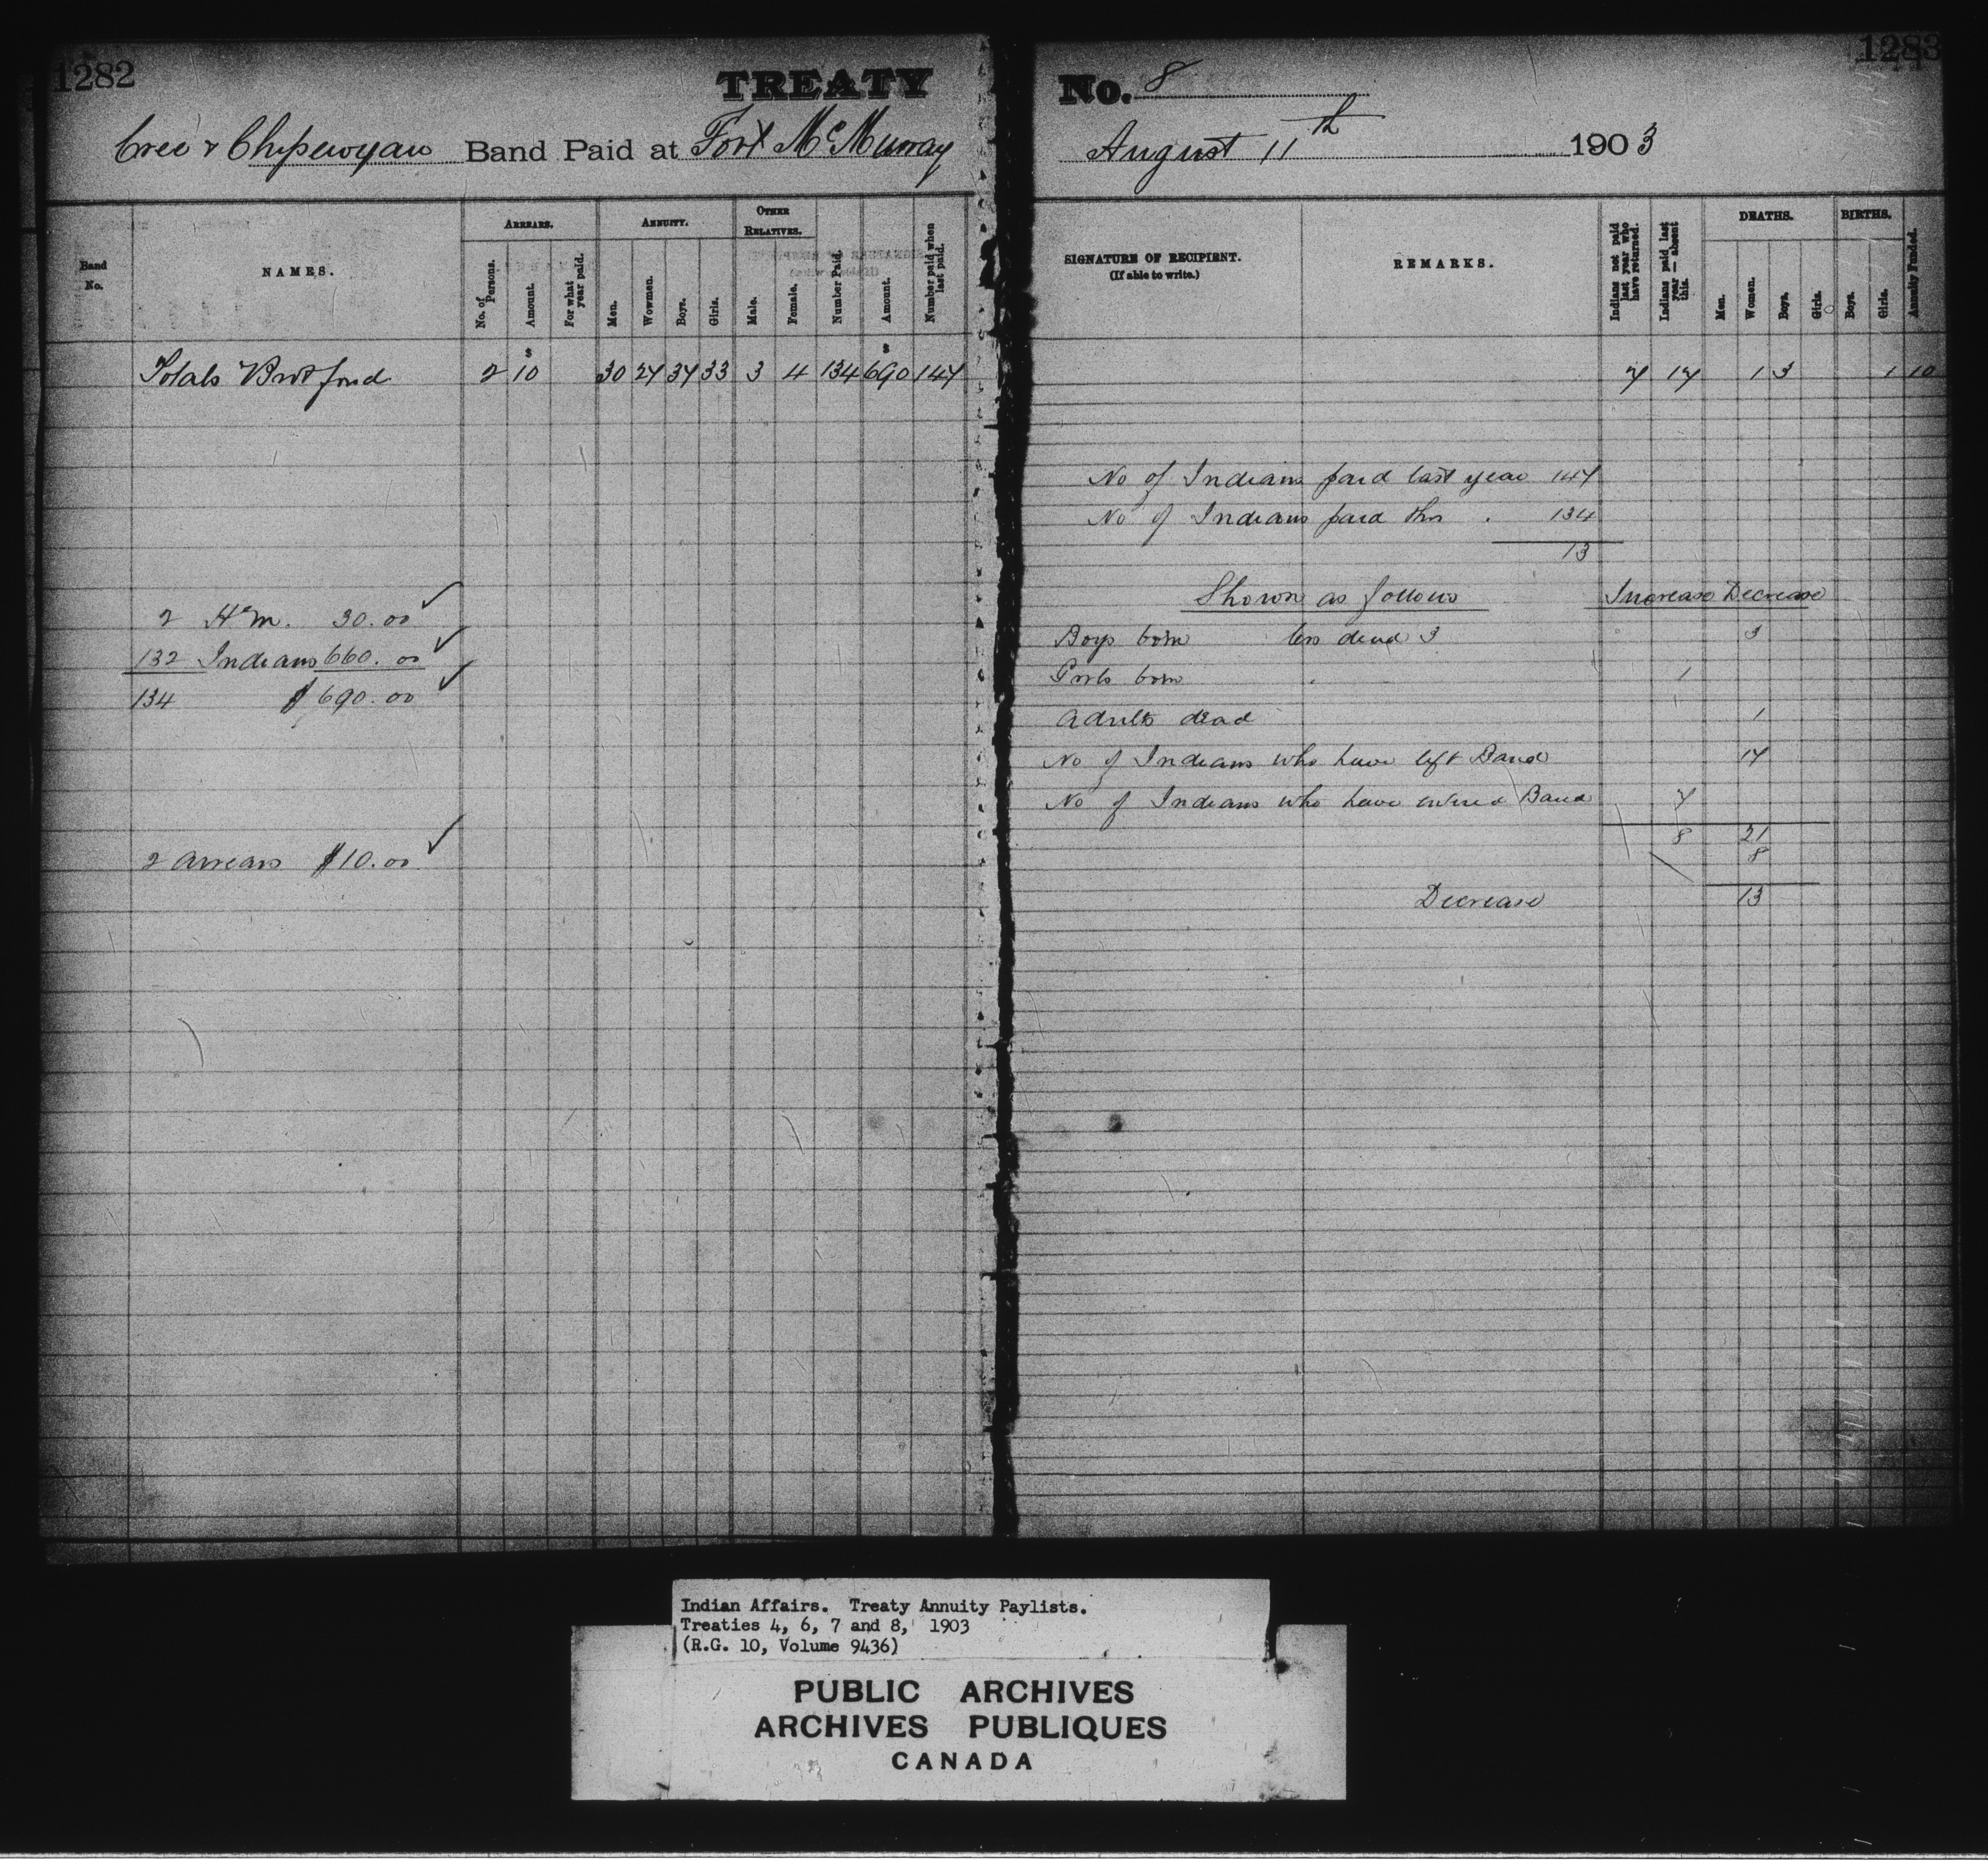 1282
TREATY
Cree & Chipewyan Band Paid at Fort McMurray
Band No.
NAMES.
ARREARS.
No. of Persons.
Amount.
For what year paid.
ANNUITY.
Men.
Wowmen.
Boys.
Girls.
OTHER RELATIVES.
Male.
Female.
Number Paid.
Amount.
Number paid when last paid.
$ $
Totals Brot ford 2 10 30 27 37 33 3 4 134 690 147
2 H'm. 30.00 ✓
132 Indians 660.00 ✓
134 $690.00 ✓
2 Arrears $10.00 ✓
1283
No. 8
August 11th 1903
SIGNATURE OF RECIPIENT.
(If able to write.)
REMARKS.
Indians not paid last year who have returned.
Indians paid last year — absent this.
DEATHS.
Men.
Women.
Boys.
Girls.
BIRTHS.
Boys.
Girls.
Annuity Funded.
7 17 1 3 1 10
No of Indians paid last year 147
No of Indians paid this . 134
13
Shown as follows Increase Decrease
Boys born less dead 3 3
Girls born 1
Adults dead 1
No of Indians who have left Band 17
No of Indians who have entered Band 7
8 21
8
Decrease 13
Indian Affairs. Treaty Annuity Paylists.
Treaties 4, 6, 7 and 8, 1903
(R.G. 10, Volume 9436)
PUBLIC ARCHIVES
ARCHIVES PUBLIQUES
CANADA